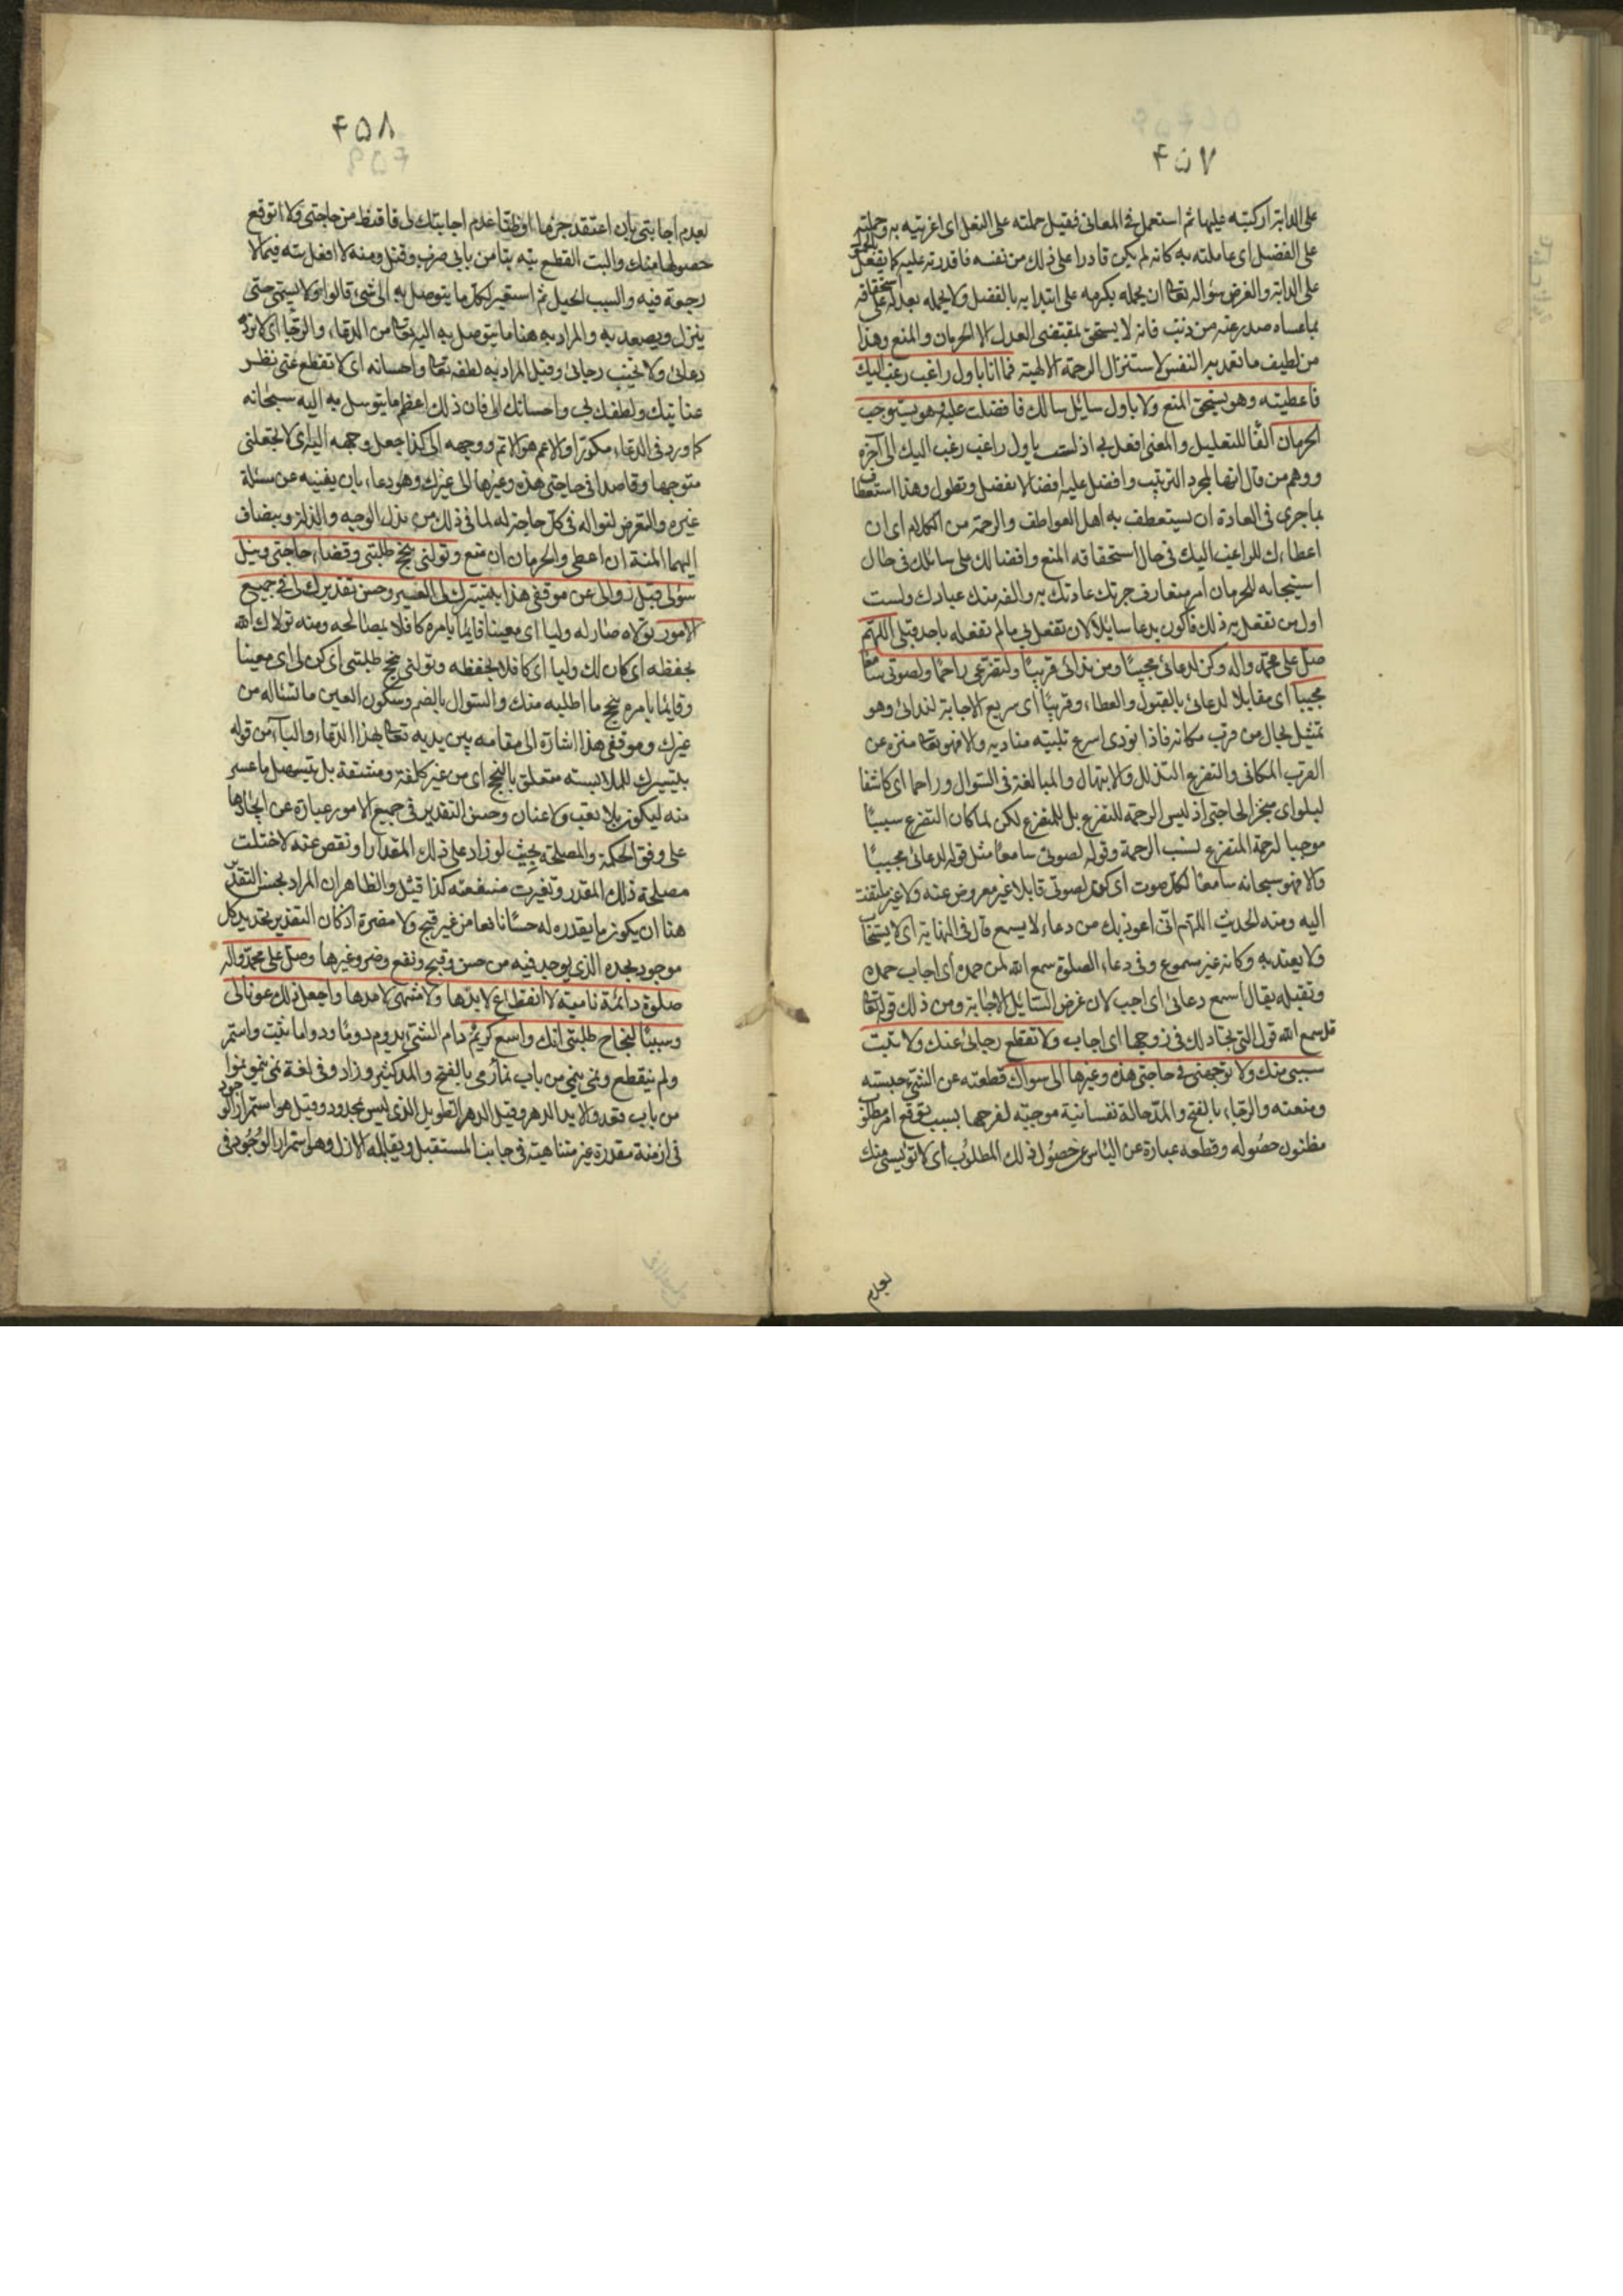 ۴۵۷
على الدابة اركبته عليها ثم استعمل فى المعانى فقيل حملته على الفعل اى اغريته به وحملته
على الفضل اى عاملته به كانه لم يكن قادرا على ذلك من نفسه فاقدرته عليه كما يفعل بالحمل
على الدابة والغرض سؤاله تعالى ان يحمله بكرمه على ابتدا به بالفضل ولا يحمله بعدله على استحقاقه
بما عساه صدر عنه من ذنب فانه لا يستحق بمقتضى العدل الا الحرمان والمنع وهذا
من لطيف ما تعد به النفس لاستنزال الرحمة الالهية فما انا باول راغب رغب اليك
فاعطيته وهو يستحق المنع ولا باول سايل سالك فافضلت عليه وهو يستوجب
الحرمان الفا للتعليل والمعنى افعل بى اذ لست باول راغب رغب اليك الى آخره
ووهم من قال انها لمجرد الترتيب وافضل عليه افضالا تفضل وتطول وهذا استعطاف
بما جرى فى العادة ان يستعطف به اهل العواطف والرحمة من الكلام اى ان
اعطاءك للراغب اليك فى حال استحقاقه المنع وافضالك على سائلك فى حال
استيجابه للحرمان امر متعارف جرت عادتك به والفه منك عبادك ولست
اول من تفعل به ذلك فاكون بدعا سايلا لان تفعل بى ما لم تفعله باحد قبلى اللهم
صل على محمد واله وكن لدعائى مجيبا ومن ندائى قريبا ولتضرعى راحما ولصوتى سامعا
مجيبا اى مقابلا لدعائى بالقبول والعطاء وقريبا اى سريع الاجابة لندائى وهو
تمثيل بحال من قرب مكانه فاذا نودى اسرع تلبيته مناديه والا فهو تعالى منزه عن
القرب المكانى والتضرع التذلل والابتهال والمبالغة فى السؤال وراحما اى كاشفا
لبلواى منجزا لحاجتى اذ ليس الرحمة للتضرع بل للمتضرع لكن لما كان التضرع سببا
موجبا لرحمة المتضرع نسب الرحمة وقوله لصوتى سامعا مثل قوله لدعائى مجيبا
والا فهو سبحانه سامعا لكل صوت اى كن لصوتى قابلا غير معروض عنه ولا غير ملتفت
اليه ومنه الحديث اللهم انى اعوذ بك من دعاء لا يسمع قال فى النهاية اى لا يستجاب
ولا يعتد به وكانه غير مسموع وفى دعاء الصلوة سمع الله لمن حمده اى اجاب حمده
وتقبله يقال اسمع دعائى اى اجب لان غرض السائل الاجابة ومن ذلك قوله تعالى
قد سمع الله قول التى تجادلك فى زوجها اى اجاب ولا تقطع رجائى عنك ولا تبت
سببى منك ولا توجهنى فى حاجتى هذه وغيرها الى سواك قطعته عن الشئ حبسته
ومنعته والرجاء بالفتح والمد حالة نفسانية موجبة لفرحها بسبب توقع امر مطلوب
مظنون حصوله وقطعه عبارة عن الياس عن حصول ذلك المطلوب اى لا تؤيسنى منك
بعدم
۴۵۸
بعدم اجابتى بان اعتقد جزما او ظنا عدم اجابتك لى فاقنط من حاجتى ولا اتوقع
حصولها منك والبت القطع بته بتا من بابى ضرب وقتل ومنه لا افعل بته فيما لا
رجعة فيه والسبب الحبل ثم استعير لكل ما يتوصل به الى شئ قالوا ولا يسمى حتى
ينزل ويصعد به والمراد به هنا ما يتوصل به اليه تعالى من الدعاء والرجا اى لا ترد
دعائى ولا تخيب رجائى وقيل المراد به لطفه تعالى واحسانه اى لا تقطع عنى نظر
عنايتك ولطفك بى واحسانك الى فان ذلك اعظم ما يتوسل به اليه سبحانه
كما ورد فى الدعاء مكررا والاعم هو الاتم ووجهه الى كذا جعل وجهه اليه اى لا تجعلنى
متوجها وقاصدا فى حاجتى هذه وغيرها الى غيرك وهو دعاء بان يغنيه عن مسئلة
غيره والتعرض لنواله فى كل حاجة له لما فى ذلك من بذل الوجه والذلة ويضاف
اليهما المنة ان اعطى والحرمان ان منع وتولنى بنجح طلبتى وقضاء حاجتى ونيل
سؤلى قبل زوالى عن موقفى هذا بتيسيرك لى العسير وحسن تقديرك لى فى جميع
الامور تولاه صار له وليا اى معينا قايما بامره كافلا بمصالحه ومنه تولاك الله
بحفظه اى كان لك وليا اى كافلا بحفظه وتولنى بنجح طلبتى اى كن لى اى معينا
وقايما بامره بنجح ما اطلبه منك والسؤل بالضم وسكون العين ما تسئاله من
غيرك وموقفى هذا اشارة الى مقامه بين يديه تعالى بهذا الدعاء والباء من قوله
بتيسيرك للملابسة متعلق بالنجح اى من غير كلفة ومشقة بل بتسهيل ما عسر
منه ليكون بلا تعب ولا عنان وحسن التقدير فى جميع الامور عبارة عن ايجادها
على وفق الحكمة والمصلحة بحيث لو زاد على ذلك المقدار او نقص عنه لاختلت
مصلحة ذلك المقدر وتغيرت منفعته كذا قيل والظاهر ان المراد بحسن التقدير
هنا ان يكون ما يقدره له حسنا نافعا من غير قبح ولا مضرة اذ كان التقدير تحديد كل
موجود بحده الذى يوجد فيه من حسن وقبح ونفع وضر وغيرها وصل على محمد واله
صلوة دائمة نامية لا انقطاع لابدها ولا منتهى لامدها واجعل ذلك عونا لى
وسببا لنجاح طلبتى انك واسع كريم دام الشئ يدوم دوما ودواما ثبت واستمر
ولم ينقطع ونمى ينمى من باب نما رمى بالفتح والمد كثير وزاد وفى لغة نمى ينمو نموا
من باب قعد والابد الدهر وقيل الدهر الطويل الذى ليس بمحدود وقيل هو استمرار الوجود
فى ازمنة مقدرة غير متناهية فى جانب المستقبل ويقابله الازل وهو استمرار الوجود فى